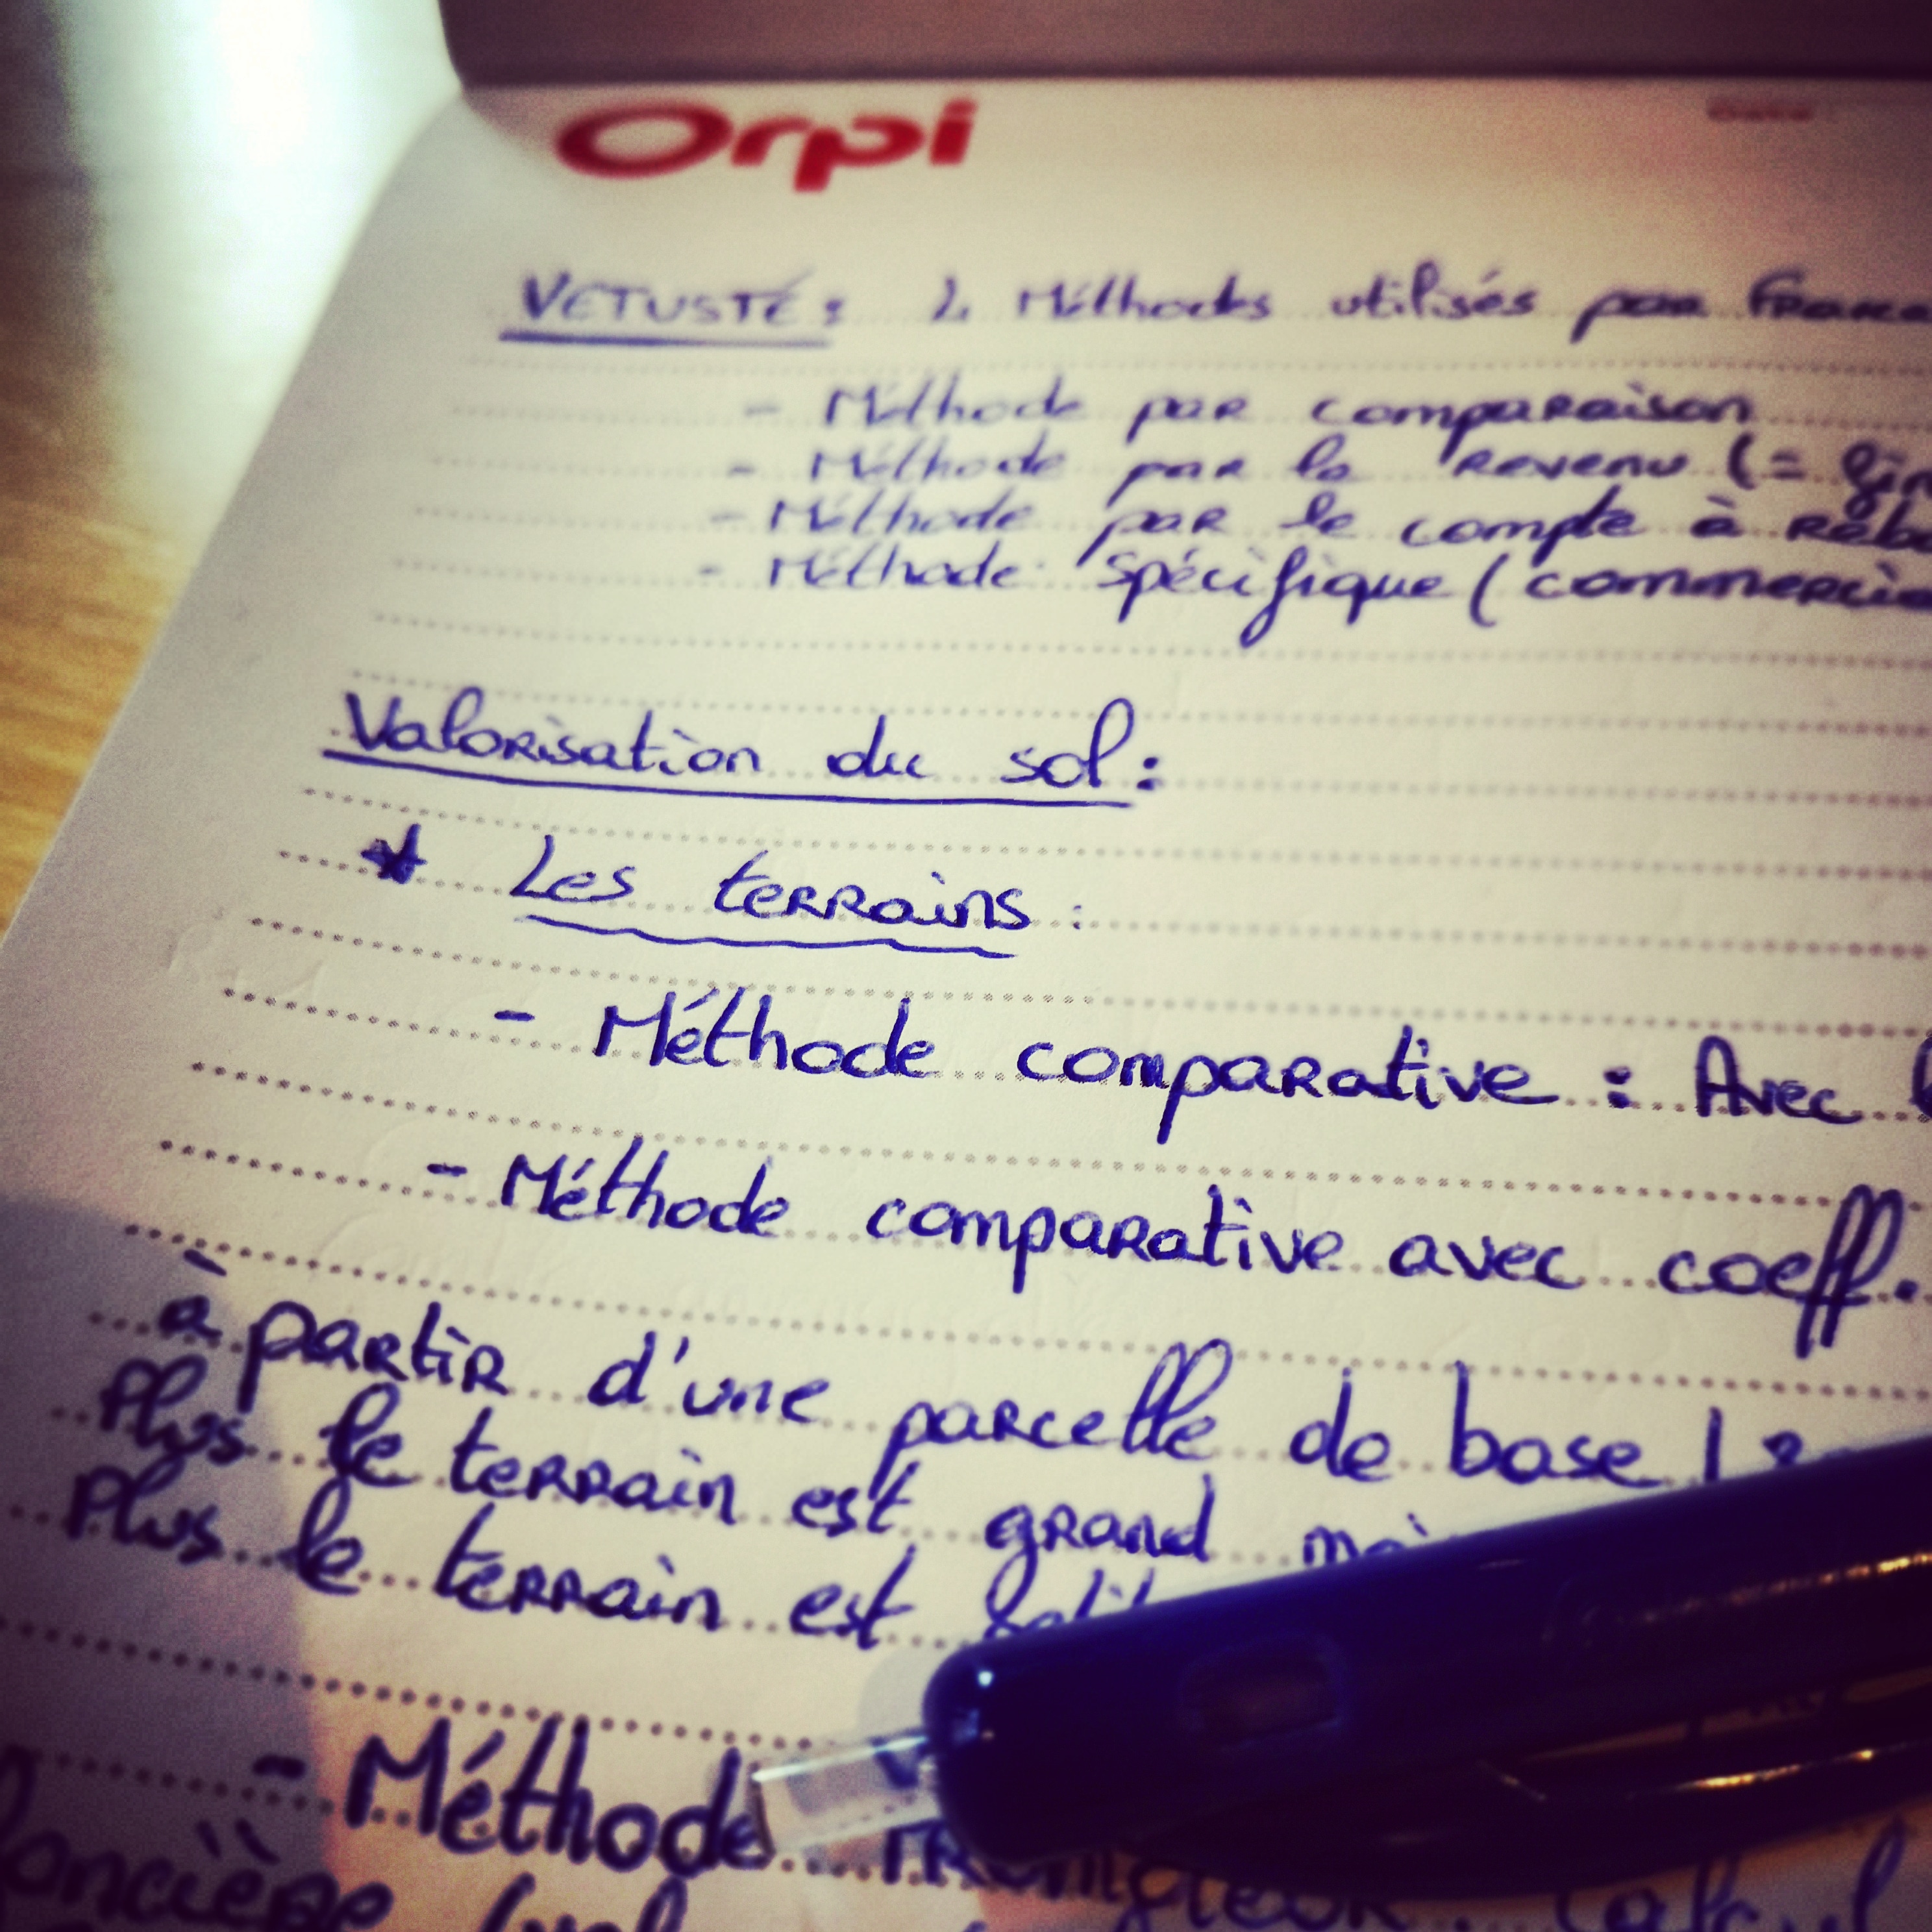 Orpi
Date
VETUSTÉ: 4 Méthodes utilisés par France
- Méthode par comparaison
- Méthode par le revenu (=
- Méthode par le compte à
- Méthode spécifique (
Valorisation du sol:
* Les terrains:
- Méthode comparative: Avec
- Méthode comparative avec coeff.
à partir d'une parcelle de base
Plus le terrain est grand
Plus le terrain est
- Méthode